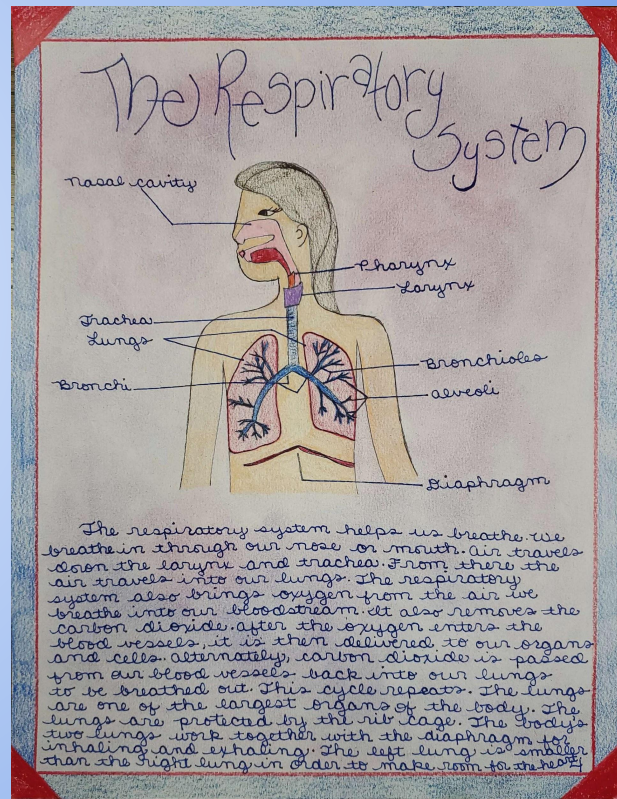 The Respiratory
System
nasal cavity
Pharynx
Larynx
Trachea
Lungs
Bronchioles
Bronchi
alveoli
Diaphragm
The respiratory system helps us breathe. We
breathe in through our nose or mouth. Air travels
down the larynx and trachea. From there the
air travels into our lungs. The respiratory
system also brings oxygen from the air we
breathe into our bloodstream. It also removes the
carbon dioxide. After the oxygen enters the
blood vessels, it is then delivered to our organs
and cells. Alternately, carbon dioxide is passed
from our blood vessels back into our lungs
to be breathed out. This cycle repeats. The lungs
are one of the largest organs of the body. The
lungs are protected by the rib cage. The body's
two lungs work together with the diaphragm for
inhaling and exhaling. The left lung is smaller
than the right lung in order to make room for the heart.